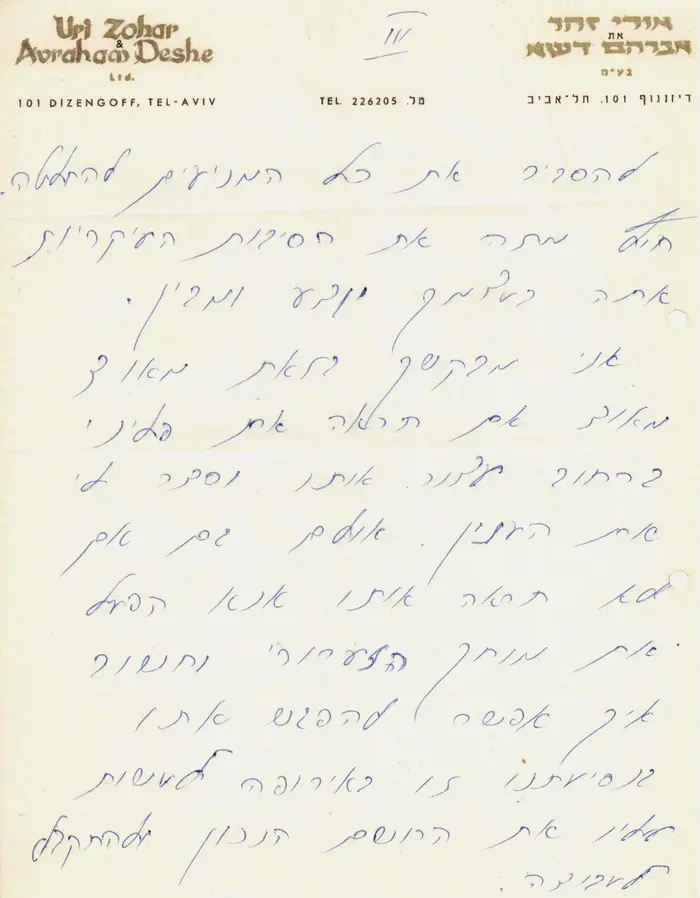 Uri Zohar
&
Avraham Deshe
Ltd.
101 DIZENGOFF, TEL-AVIV
III
TEL. 226205 .טל
אורי זהר
את
אברהם דשא
בע״מ
דיזנגוף 101. תל־אביב
להסביר את כל המניעים להחלטה.
חוץ מזה את הסיבות העיקריות
אתה בעצמך יודע ומבין.
אני מבקשך בזאת מאוד
מאוד אם תראה את פליני
ברחוב עצור אותו וספר לי
את הענין. אולם גם אם
לא תראה אותו אנא הפעל
את מוחך הזערורי וחשוב
איך אפשר להפגש אתו
בנסיעתנו זו באירופה לעשות
עליו את הרושם הנכון ולהתקבל
לעבודה.